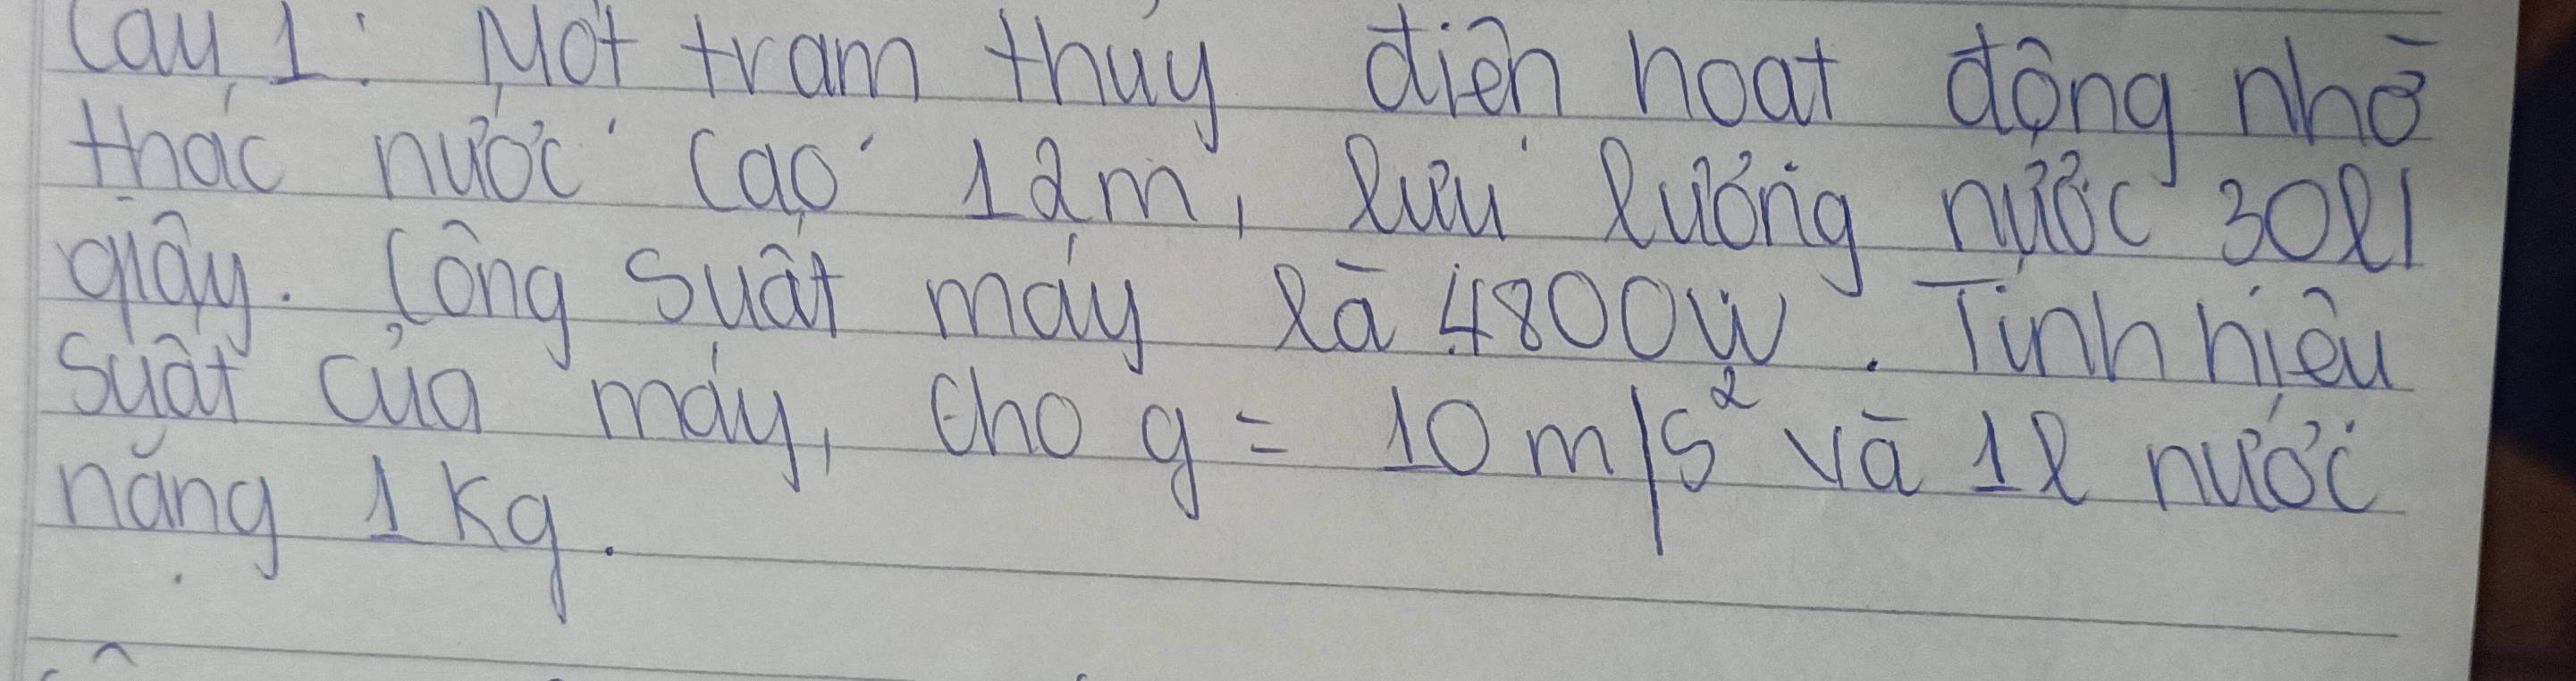 Câu 1: Một trạm thủy điện hoạt động nhờ
thác nước cao 12m, lưu lượng nước 30l/
giây. Công suất máy là 4800W. Tính hiệu
suất của máy, cho g = 10 m/s² và 1l nước
nặng 1 Kg.